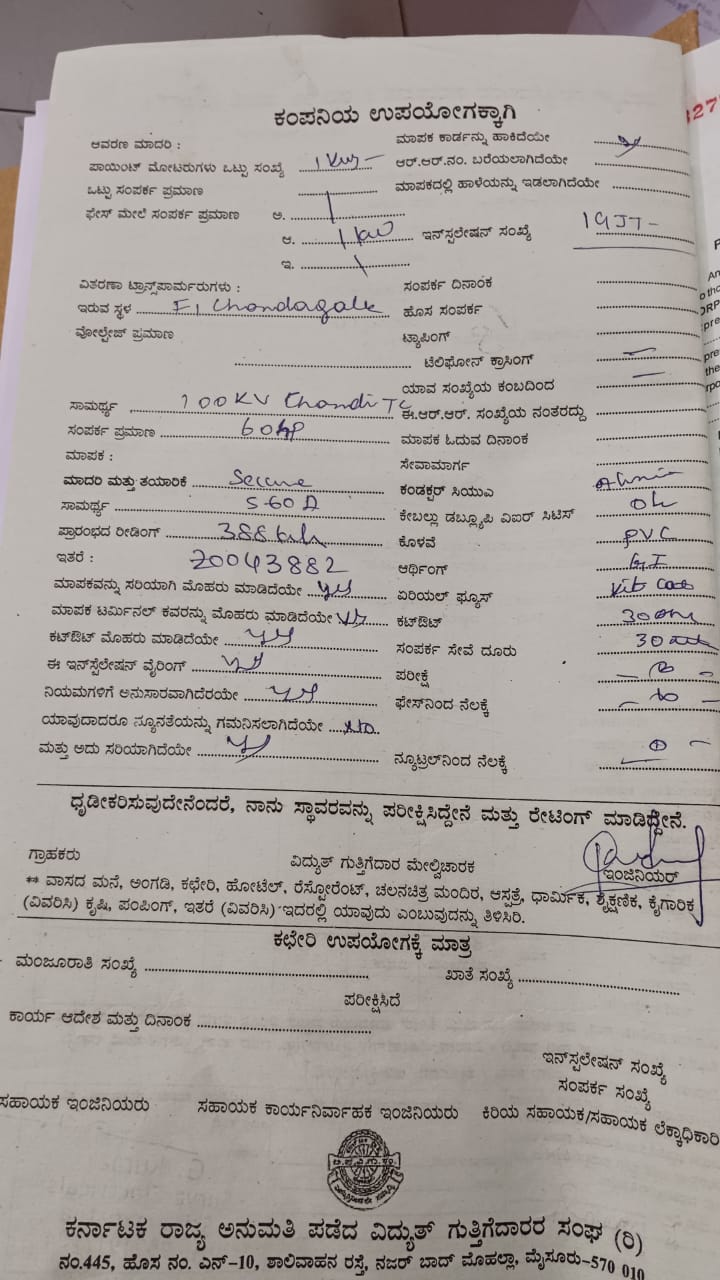 327
ಕಂಪನಿಯ ಉಪಯೋಗಕ್ಕಾಗಿ
ಆವರಣ ಮಾದರಿ :
ಮಾಪಕ ಕಾರ್ಡನ್ನು ಹಾಕಿದೆಯೇ
ಪಾಯಿಂಟ್ ಮೋಟರುಗಳು ಒಟ್ಟು ಸಂಖ್ಯೆ 1 Kw
ಆರ್.ಆರ್.ನಂ. ಬರೆಯಲಾಗಿದೆಯೇ
ಒಟ್ಟು ಸಂಪರ್ಕ ಪ್ರಮಾಣ
ಮಾಪಕದಲ್ಲಿ ಹಾಳೆಯನ್ನು ಇಡಲಾಗಿದೆಯೇ
ಫೇಸ್ ಮೇಲೆ ಸಂಪರ್ಕ ಪ್ರಮಾಣ ಅ.
ಆ. 1 kw ಇನ್‌ಸ್ಪಲೇಷನ್ ಸಂಖ್ಯೆ
ಇ.
ವಿತರಣಾ ಟ್ರಾನ್ಸ್‌ಪಾರ್ಮರುಗಳು :
ಸಂಪರ್ಕ ದಿನಾಂಕ
ಇರುವ ಸ್ಥಳ F1 Chandagale
ಹೊಸ ಸಂಪರ್ಕ
ವೋಲ್ಟೇಜ್ ಪ್ರಮಾಣ
ಟ್ಯಾಪಿಂಗ್
ಟೆಲಿಫೋನ್ ಕ್ರಾಸಿಂಗ್ –
ಯಾವ ಸಂಖ್ಯೆಯ ಕಂಬದಿಂದ –
ಸಾಮರ್ಥ್ಯ 100KV Chandi TC
ಈ.ಆರ್.ಆರ್. ಸಂಖ್ಯೆಯ ನಂತರದ್ದು
ಸಂಪರ್ಕ ಪ್ರಮಾಣ 60hp
ಮಾಪಕ ಓದುವ ದಿನಾಂಕ
ಮಾಪಕ :
ಸೇವಾಮಾರ್ಗ
ಮಾದರಿ ಮತ್ತು ತಯಾರಿಕೆ Secure
ಕಂಡಕ್ಟರ್ ಸಿಯುಎ
ಸಾಮರ್ಥ್ಯ 5-60 A
ಕೇಬಲ್ಲು ಡಬ್ಲ್ಯೂಪಿ ವಿಐರ್ ಸಿಟಿಸ್ Ok
ಪ್ರಾರಂಭದ ರೀಡಿಂಗ್ 388 kwh
ಕೊಳವೆ PVC
ಇತರೆ : 20043882
ಆರ್ಥಿಂಗ್ GI
ಮಾಪಕವನ್ನು ಸರಿಯಾಗಿ ಮೊಹರು ಮಾಡಿದೆಯೇ yes
ಏರಿಯಲ್ ಫ್ಯೂಸ್
ಮಾಪಕ ಟರ್ಮಿನಲ್ ಕವರನ್ನು ಮೊಹರು ಮಾಡಿದೆಯೇ yes
ಕಟ್‌ಔಟ್
ಕಟ್‌ಔಟ್ ಮೊಹರು ಮಾಡಿದೆಯೇ yes
ಸಂಪರ್ಕ ಸೇವೆ ದೂರು
ಈ ಇನ್‌ಸ್ಪೆಲೇಷನ್ ವೈರಿಂಗ್ yes
ಪರೀಕ್ಷೆ
ನಿಯಮಗಳಿಗೆ ಅನುಸಾರವಾಗಿದೆರಯೇ yes
ಫೇಸ್‌ನಿಂದ ನೆಲಕ್ಕೆ
ಯಾವುದಾದರೂ ನ್ಯೂನತೆಯನ್ನು ಗಮನಿಸಲಾಗಿದೆಯೇ No
ಮತ್ತು ಅದು ಸರಿಯಾಗಿದೆಯೇ
ನ್ಯೂಟ್ರಲ್‌ನಿಂದ ನೆಲಕ್ಕೆ
ಧೃಡೀಕರಿಸುವುದೇನೆಂದರೆ, ನಾನು ಸ್ಥಾವರವನ್ನು ಪರೀಕ್ಷಿಸಿದ್ದೇನೆ ಮತ್ತು ರೇಟಿಂಗ್ ಮಾಡಿದ್ದೇನೆ.
ಗ್ರಾಹಕರು ವಿದ್ಯುತ್ ಗುತ್ತಿಗೆದಾರ ಮೇಲ್ವಿಚಾರಕ ಇಂಜಿನಿಯರ್
** ವಾಸದ ಮನೆ, ಅಂಗಡಿ, ಕಛೇರಿ, ಹೋಟೆಲ್, ರೆಸ್ಟೋರೆಂಟ್, ಚಲನಚಿತ್ರ ಮಂದಿರ, ಆಸ್ಪತ್ರೆ, ಧಾರ್ಮಿಕ, ಶೈಕ್ಷಣಿಕ, ಕೈಗಾರಿಕೆ
(ವಿವರಿಸಿ) ಕೃಷಿ, ಪಂಪಿಂಗ್, ಇತರೆ (ವಿವರಿಸಿ) ಇದರಲ್ಲಿ ಯಾವುದು ಎಂಬುವುದನ್ನು ತಿಳಿಸಿರಿ.
ಕಛೇರಿ ಉಪಯೋಗಕ್ಕೆ ಮಾತ್ರ
ಮಂಜೂರಾತಿ ಸಂಖ್ಯೆ ಖಾತೆ ಸಂಖ್ಯೆ
ಪರೀಕ್ಷಿಸಿದೆ
ಕಾರ್ಯ ಆದೇಶ ಮತ್ತು ದಿನಾಂಕ
ಇನ್‌ಸ್ಪಲೇಷನ್ ಸಂಖ್ಯೆ
ಸಂಪರ್ಕ ಸಂಖ್ಯೆ
ಸಹಾಯಕ ಇಂಜಿನಿಯರು ಸಹಾಯಕ ಕಾರ್ಯನಿರ್ವಾಹಕ ಇಂಜಿನಿಯರು ಕಿರಿಯ ಸಹಾಯಕ/ಸಹಾಯಕ ಲೆಕ್ಕಾಧಿಕಾರಿ
ಕರ್ನಾಟಕ ರಾಜ್ಯ ಅನುಮತಿ ಪಡೆದ ವಿದ್ಯುತ್ ಗುತ್ತಿಗೆದಾರರ ಸಂಘ (ರಿ)
ನಂ.445, ಹೊಸ ನಂ. ಎನ್-10, ಶಾಲಿವಾಹನ ರಸ್ತೆ, ನಜರ್ ಬಾದ್ ಮೊಹಲ್ಲಾ, ಮೈಸೂರು-570 010